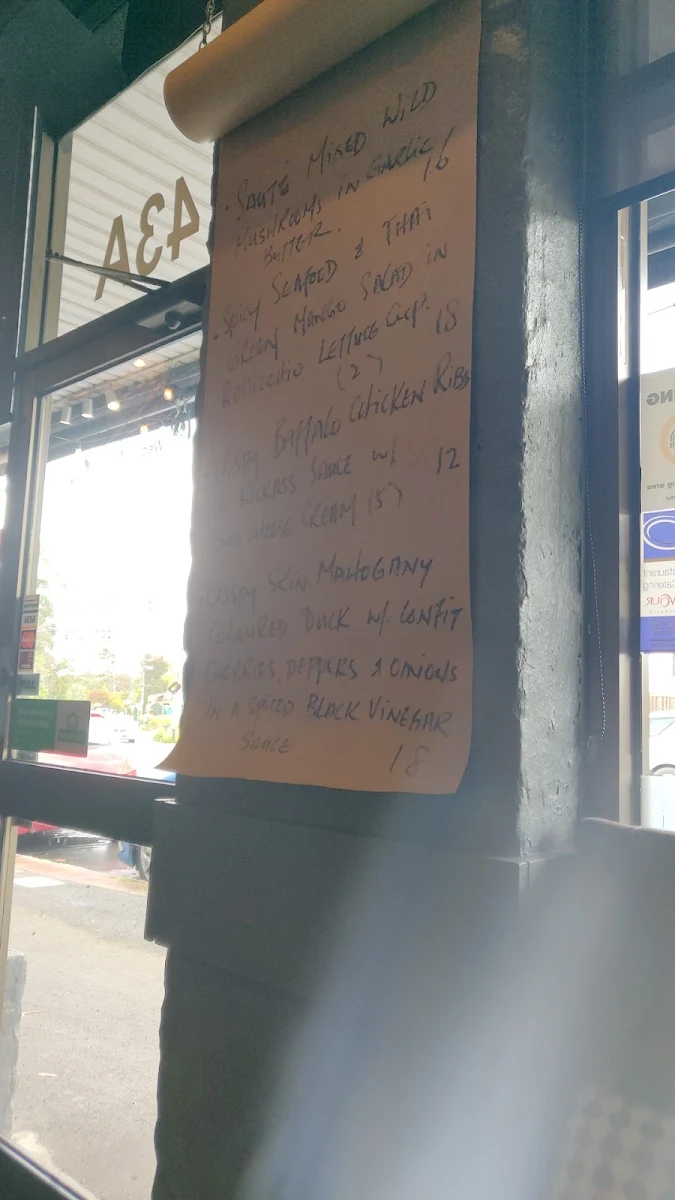 43A
· SAUTÉ MIXED WILD
MUSHROOMS IN GARLIC
BUTTER.
16
· SPICY SEAFOOD & THAI
GREEN MANGO SALAD IN
RADICCHIO LETTUCE CUP.
(2)
18
BUFFALO CHICKEN RIBS
KICKASS SAUCE W/
CHEESE CREAM (5)
12
CRISPY SKIN MAHOGANY
COLOURED DUCK W/ CONFIT
CHERRIES, PEPPERS & ONIONS
IN A SPICED BLACK VINEGAR
SAUCE
18